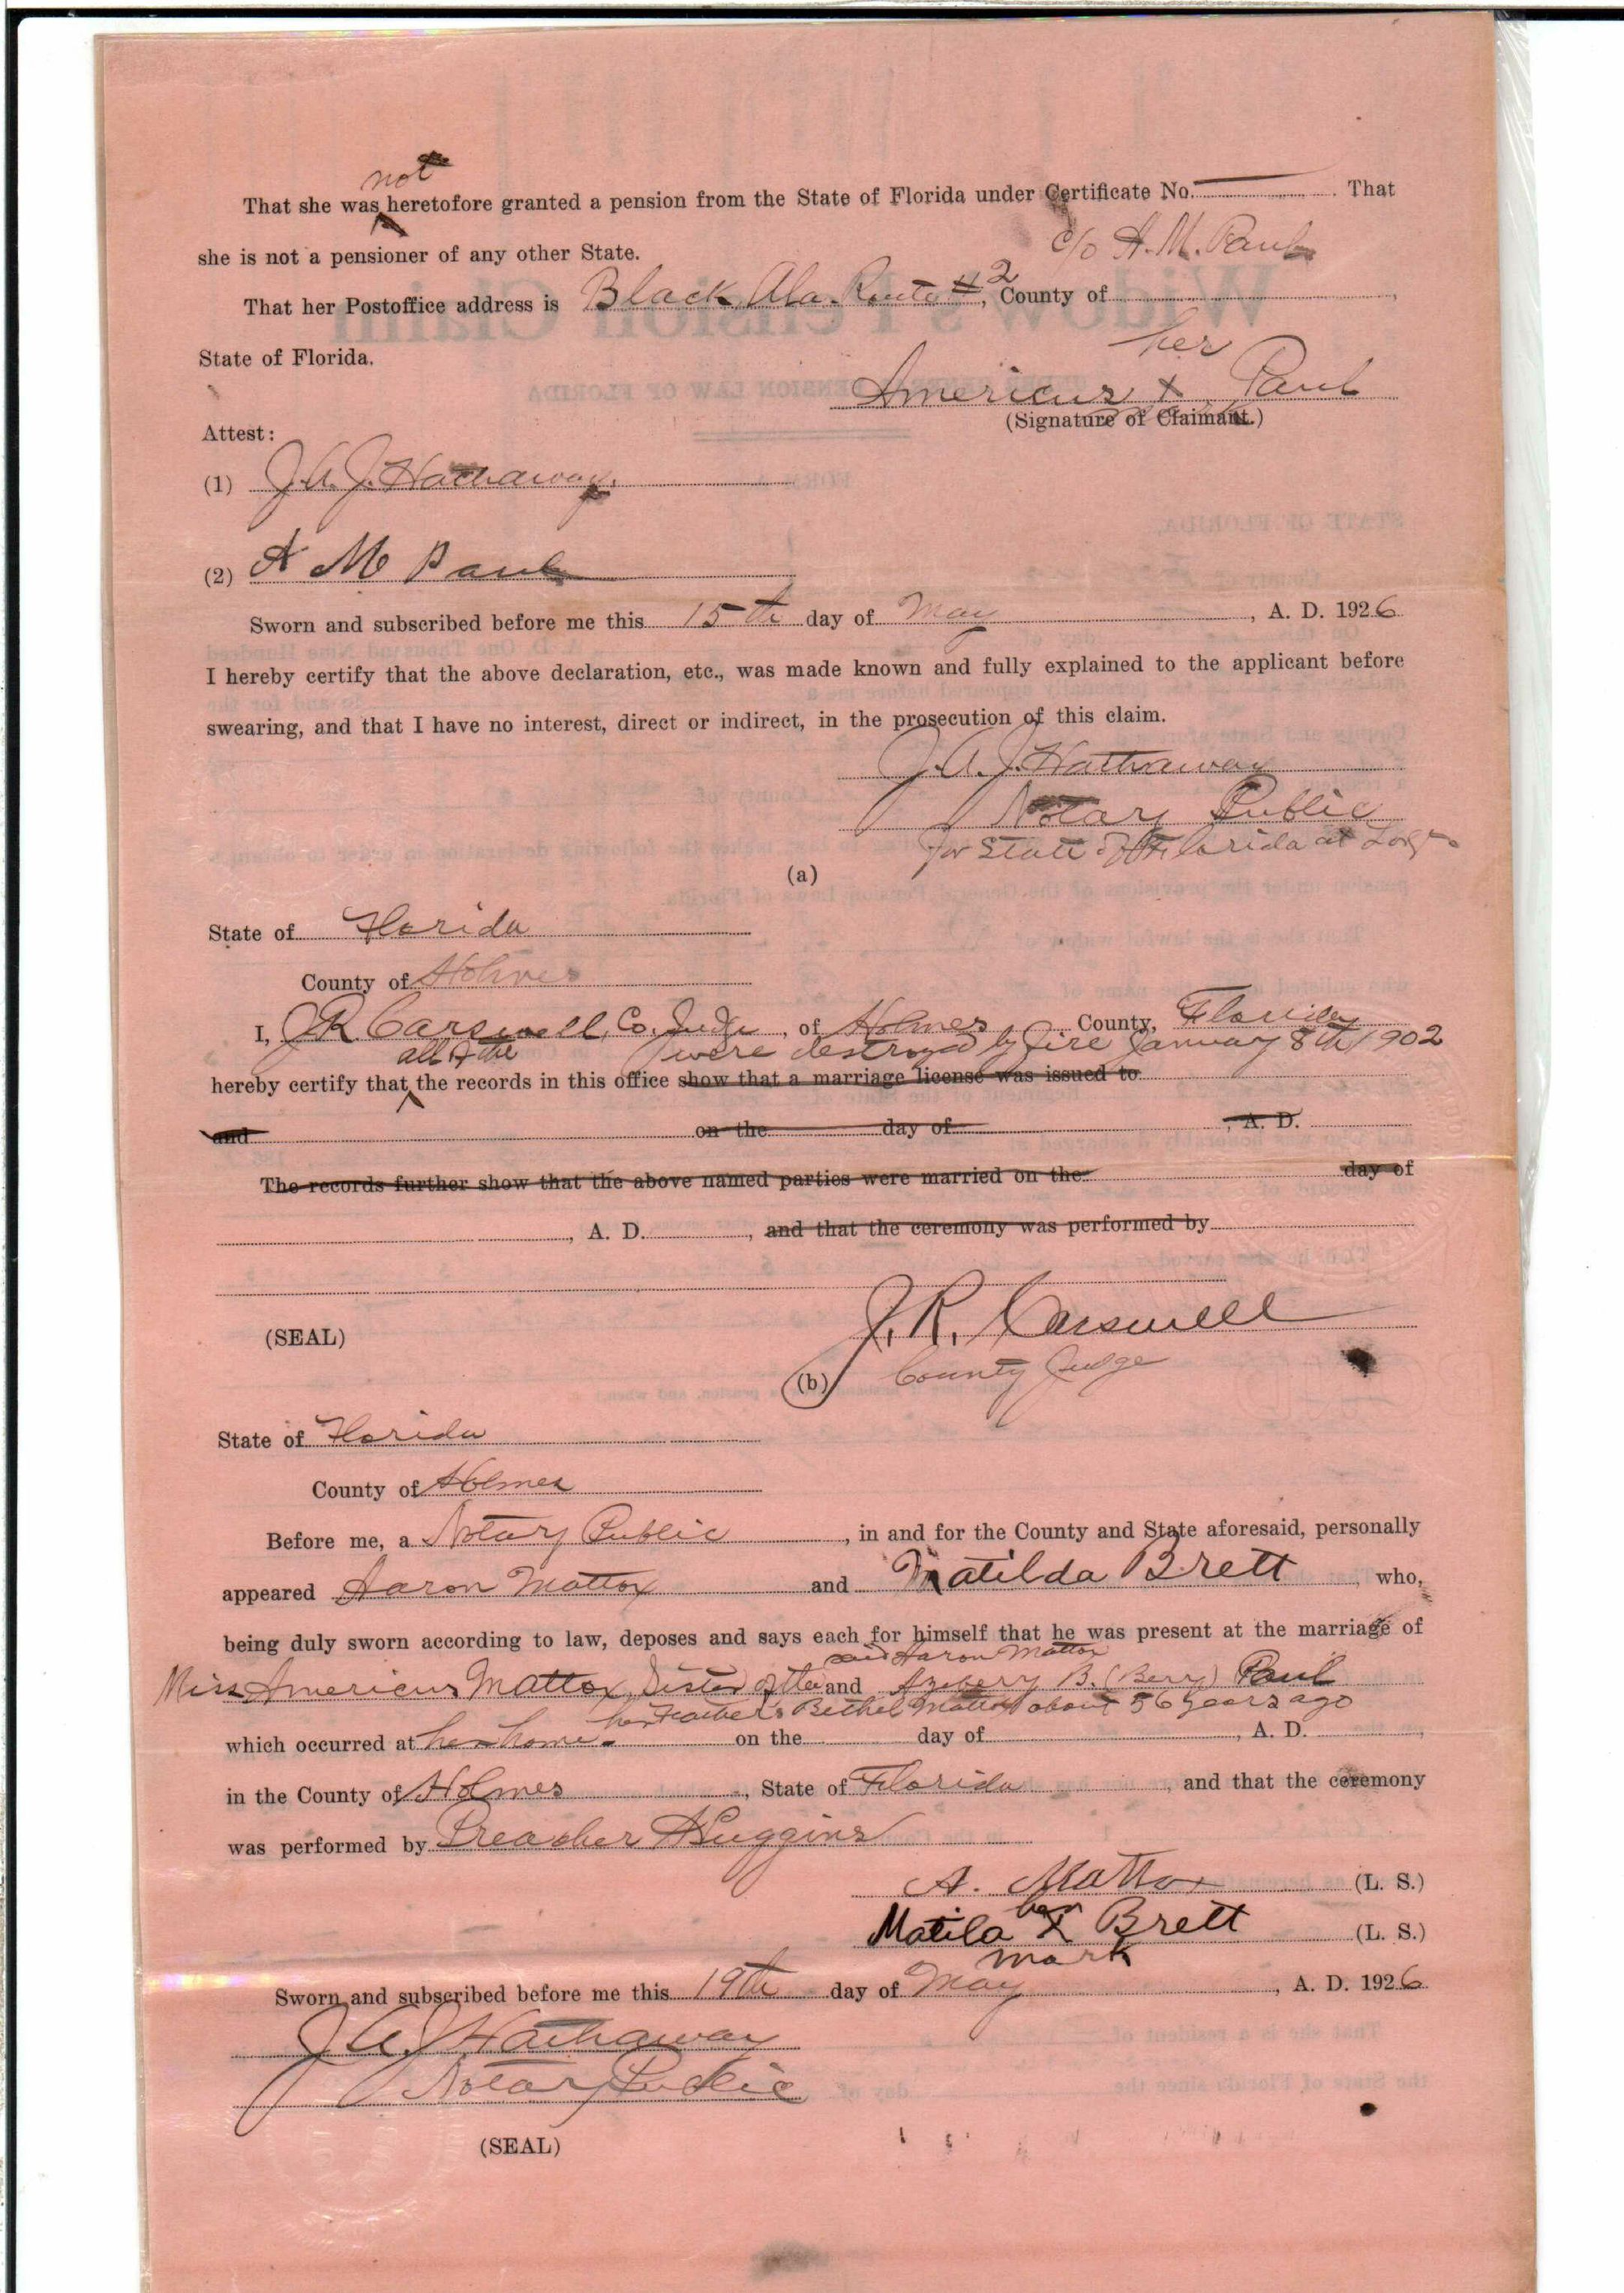 not
That she was heretofore granted a pension from the State of Florida under Certificate No. That
she is not a pensioner of any other State.
c/o A. M. Paul
That her Postoffice address is Black, Ala. Route #2, County of
State of Florida.
her
Americus X Paul
(Signature of Claimant.)
Attest:
(1) J. A. J. Hathaway.
(2) A M Paul
Sworn and subscribed before me this 15th day of May, A. D. 1926
I hereby certify that the above declaration, etc., was made known and fully explained to the applicant before
swearing, and that I have no interest, direct or indirect, in the prosecution of this claim.
J. A. J. Hathaway
Notary Public
for State of Florida at Large
(a)
State of Florida
County of Holmes
I, J. R. Carswell, Co. Judge, of Holmes County, Florida
all of the were destroyed by fire January 8th 1902
hereby certify that the records in this office show that a marriage license was issued to
and on the day of , A. D.
The records further show that the above named parties were married on the day of
, A. D. , and that the ceremony was performed by
J. R. Carswell
(SEAL)
(b) County Judge
State of Florida
County of Holmes
Before me, a Notary Public, in and for the County and State aforesaid, personally
appeared Aaron Mattox and Matilda Brett, who,
being duly sworn according to law, deposes and says each for himself that he was present at the marriage of
said Aaron Mattox
Miss Americus Mattox, Sister of the and B. (Berry) Paul
her Father's Bethel Mattox about 56 years ago
which occurred at her home on the day of , A. D. ,
in the County of Holmes, State of Florida, and that the ceremony
was performed by Preacher Huggins
A. Mattox (L. S.)
her
Matila X Brett (L. S.)
mark
Sworn and subscribed before me this 19th day of May, A. D. 1926
J. A. J. Hathaway
Notary Public
(SEAL)